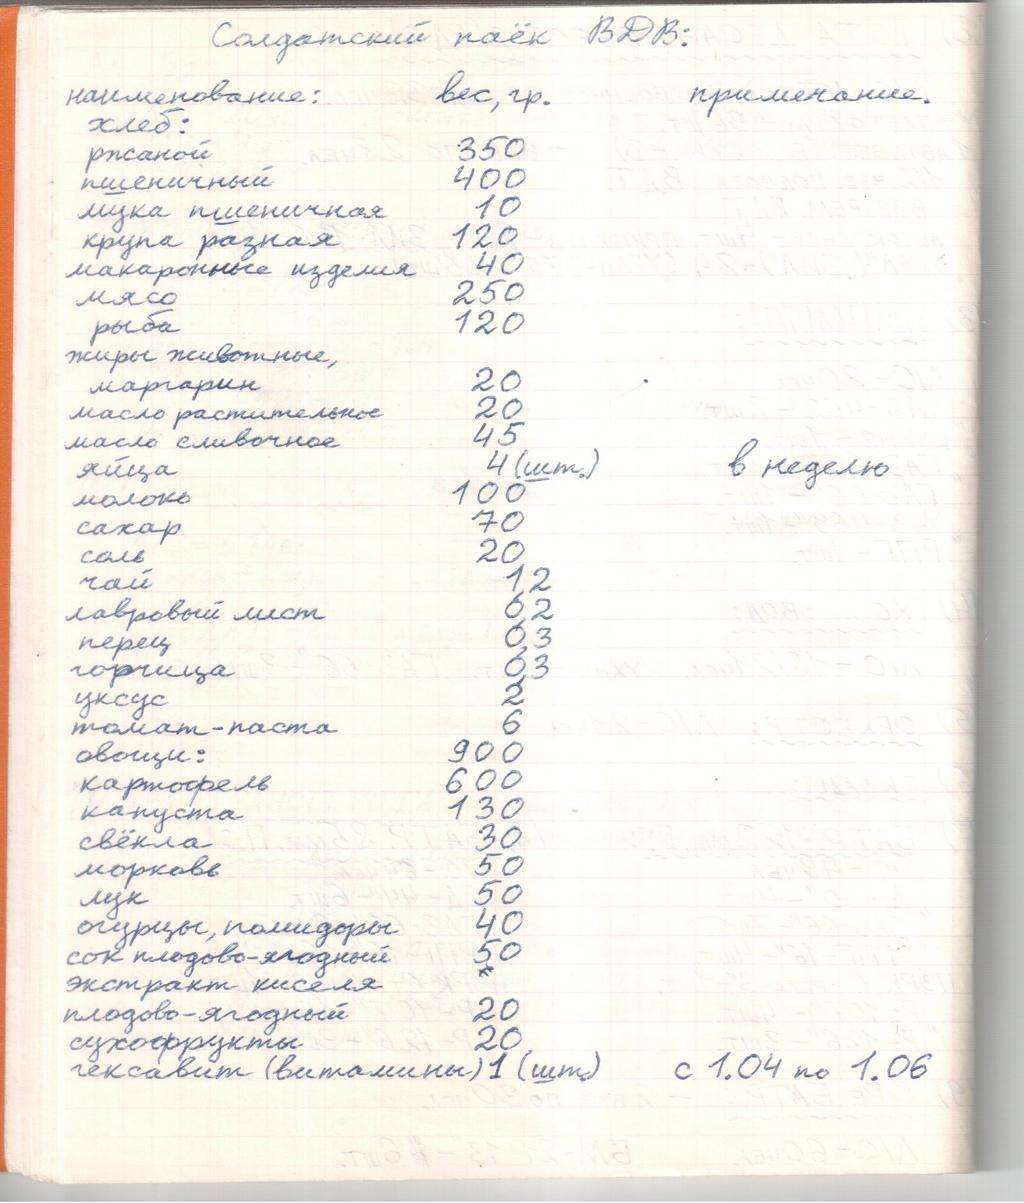 Солдатский паёк ВДВ:
наименование: вес, гр. примечание.
хлеб:
ржаной 350
пшеничный 400
мука пшеничная 10
крупа разная 120
макаронные изделия 40
мясо 250
рыба 120
жиры животные,
маргарин 20
масло растительное 20
масло сливочное 45
яйца 4 (шт.) в неделю
молоко 100
сахар 70
соль 20
чай 1,2
лавровый лист 0,2
перец 0,3
горчица 0,3
уксус 2
томат-паста 6
овощи: 900
картофель 600
капуста 130
свёкла 30
морковь 50
лук 50
огурцы, помидоры 40
сок плодово-ягодный 50
экстракт киселя *
плодово-ягодный 20
сухофрукты 20
гексавит (витамины) 1 (шт.) с 1.04 по 1.06